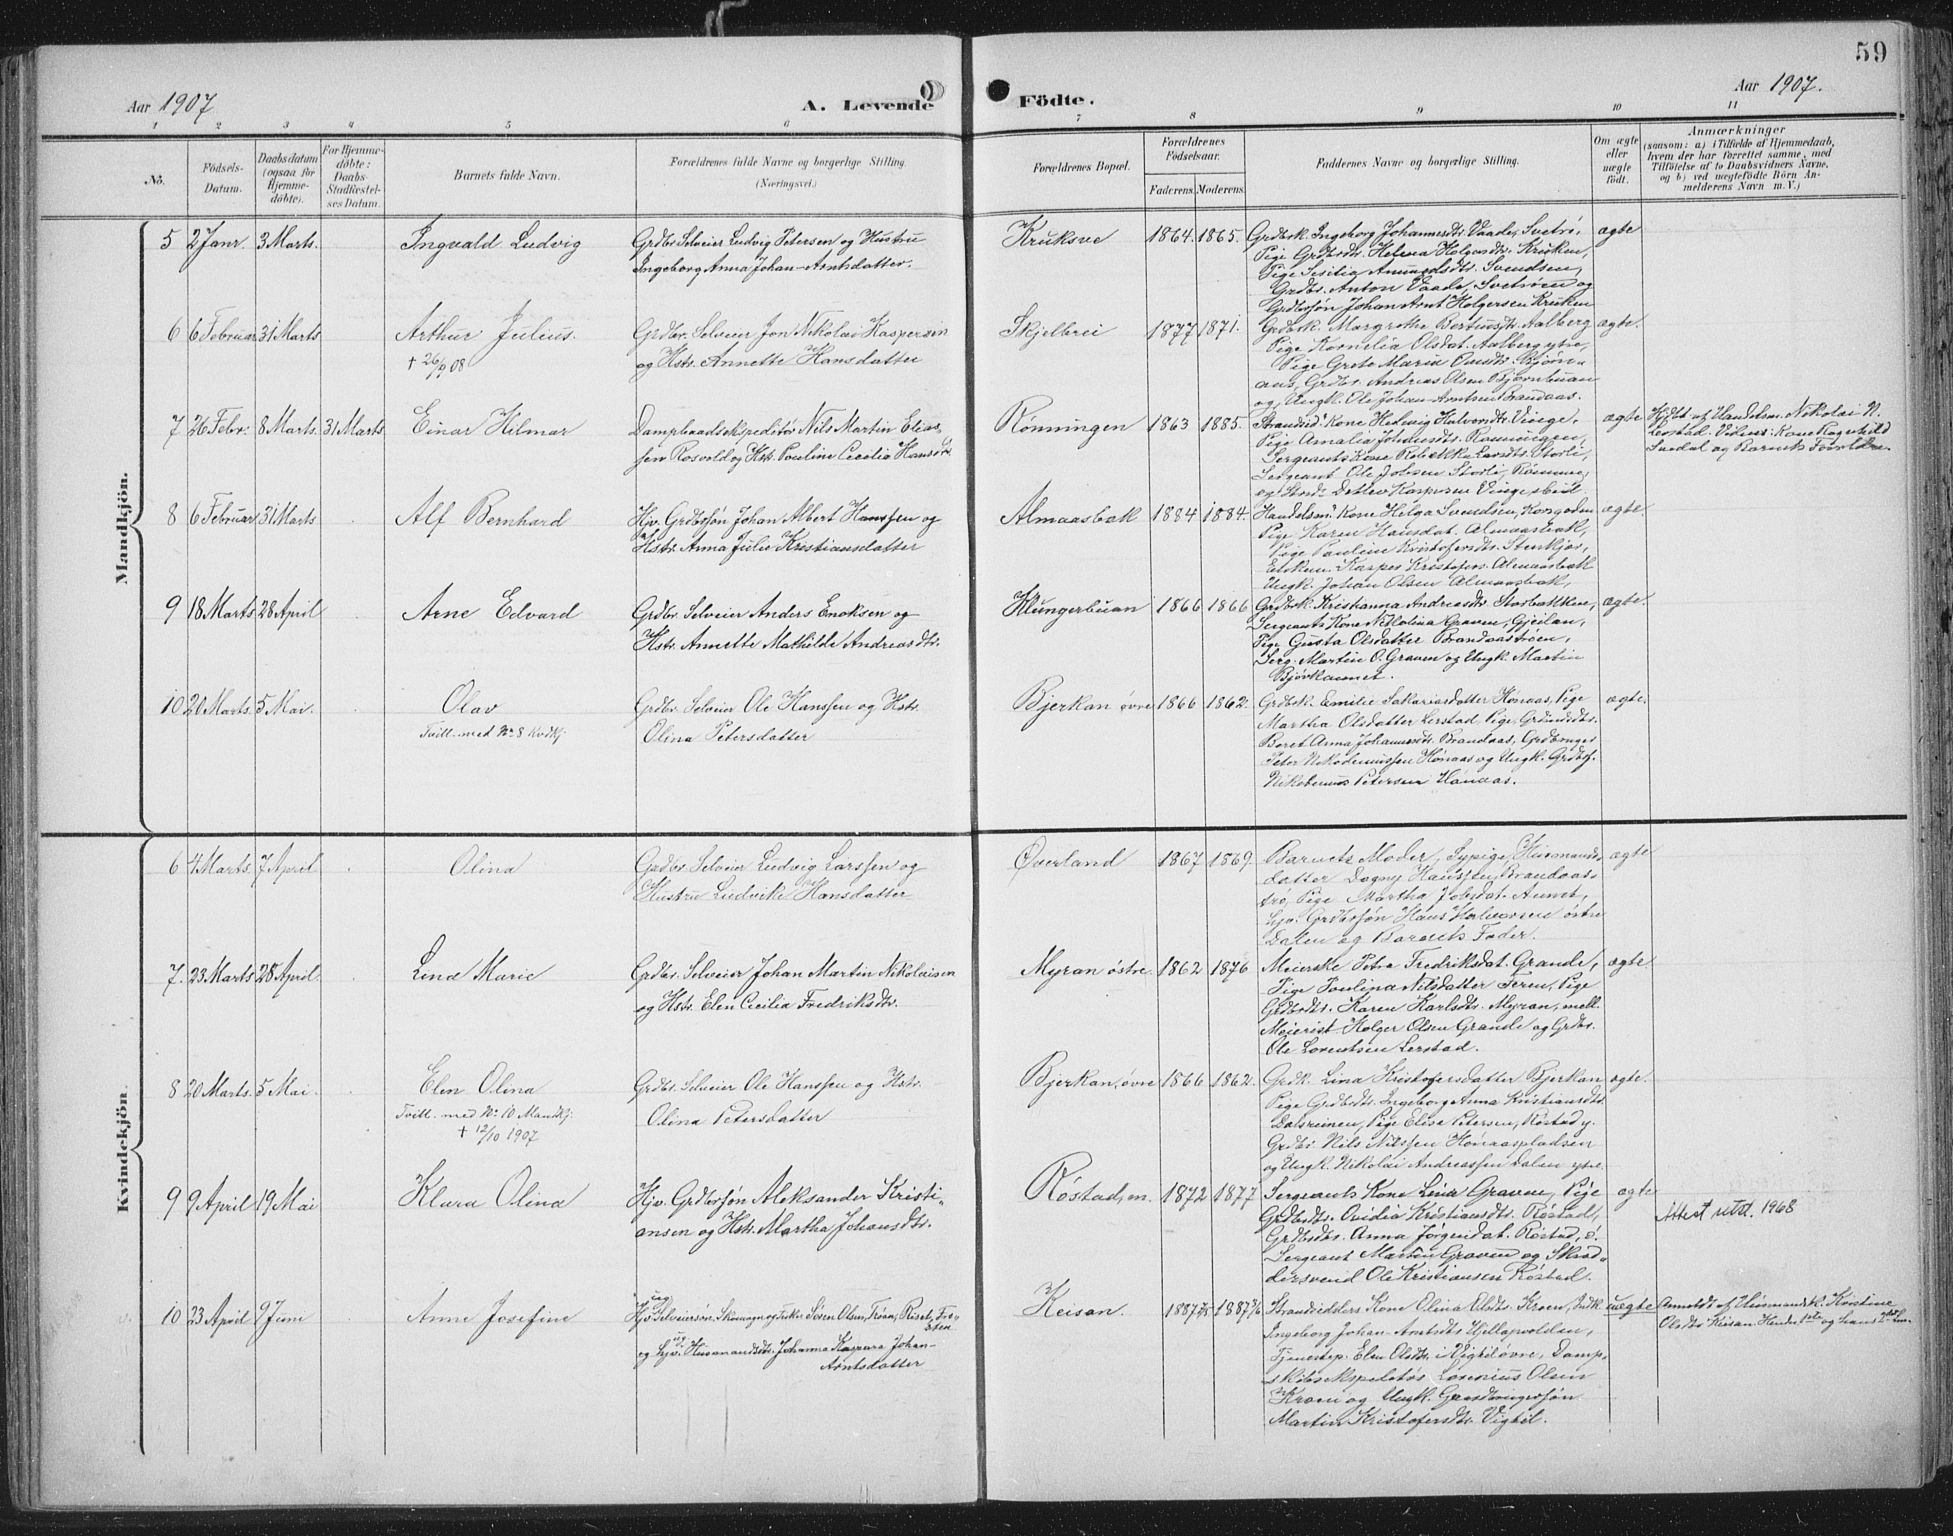 59
Aar 1907
A. Levende
Födte.
Aar 1907.
1 2 3 4 5 6 7 8 9 10 11
No.
Födsels-
Datum.
Daabsdatum
(ogsaa for
Hjemme-
döbte).
For Hjemme-
döbte:
Daabs-
Stadfæstel-
ses Datum.
Barnets fulde Navn.
Forældrenes fulde Navne og borgerlige Stilling.
(Næringsvei.)
Forældrenes Bopæl.
Forældrenes
Födselsaar.
Faderens. Moderens.
Faddernes Navne og borgerlige Stilling.
Om ægte
eller
uægte
födt.
Anmærkninger
(saasom: a) i Tilfælde af Hjemmedaab,
hvem der har forrettet samme, med
Tilföielse af to Daabsvidners Navne,
og b) ved uægtefödte Börn An-
melderens Navn m. V.)
Mandkjön.
5 2 Janr. 3 Marts. Ingvald Ludvig
Grdbr. Selveier Ludvig Petersen og Hustru
Ingeborg Anna Johan-Arntsdatter.
Kruksve 1864. 1865.
Grdbrk. Ingeborg Johannesdtr. Vaade, Svetrö,
Pige Grdbrdtr. Helena Holgersdtr. Kruken,
Pige Sesilia Amundsdtr. Svendsen,
Grdbr. Anton Vaade, Svetröen og
Grdbrsön Johan Arnt Holgersen Kruken
ægte
6 6 Februar 31 Marts Arthur Julius.
+ 26/9 08
Grdbr. Selveier Jon Nikolai Kaspersen
og Hstr. Annette Hansdatter
Skjelbrei 1877 1871.
Grdbrk. Margrethe Bertinsdtr. Aalberg
Pige Kornelia Olsdat. Aalberg ytre,
Pige Grete Maria Omsdtr. Bjørn-
aas, Grdbr. Andreas Olsen Bjørnbuan
og Ungk. Ole Johan-Arntsen Brandaas.
ægte.
7 26 Febr. 8 Marts. 31 Marts. Einar Hilmar
Dampbaadsekspeditör Nils Martin Elias-
sen Rosvold og Hstr. Pauline Cecilia Hansdtr.
Rönningen 1863 1885.
Strandsid. Kone Hedvig Halvorsdtr. Vinge,
Pige Amalia Johansdtr. Rönningen,
Sergeants Kone Rebekka Larsdtr. Storli,
Sergeant Ole Jobsen Storli, Römme,
og Stud. Detlev Kaspersen Vinge
ægte
Hjdbt. af Handelsm. Nikolai N.
Lerstad. Vidner: Kone Ragnhild
Suedal og Barnets Forældre.
8 6 Februar 31 Marts Alf Bernhard
Hjv. Grdbrsön Johan Albert Hanssen og
Hstr. Anna Julie Kristiansdatter
Almaasbak 1884 1884.
Handelsm. Kone Helga Svendsen, Korsveden
Pige Karen Hansdat. Almaasbak,
Pige Pauline Kristofersdtr. Stenkjær,
Enkem. Kasper Kristofers. Almaasbak
Ungk. Johan Olsen Almaasbak,
ægte.
9 18 Marts 28 April Arne Edvard
Grdbr. Selveier Anders Enoksen og
Hstr. Annette Mathilde Andreasdtr.
Klungerbuan 1866 1866
Grdbrk. Kristianna Andreasdtr. Storbakken,
Sergeants Kone Nikolina Graven, Gjeilan,
Pige Gusta Olsdatter Brandaaströen,
Serg. Martin O. Graven og Ungk. Martin
Bjövkaunet.
ægte.
10 20 Marts. 5 Mai. Olav
Tvill. med No 8 Kvdkj.
Grdbr. Selveier Ole Hanssen og Hstr.
Olina Petersdatter
Bjerkan övre 1866 1862.
Grdbrk. Emilie Sakariasdatter Hønaas, Pige
Martha Olsdatter Lerstad, Pige, Grdmdsdtr.
Beret Anna Johannesdtr. Brandaas, Grdbruger
Peter Nikodemussen Hønaas og Ungk. Grdbrs.
Nikodemus Petersen Hønaas.
ægte.
Kvindekjön
6 4 Marts. 7 April Olina
Grdbr. Selveier Ludvig Larssen og
Hustru Ludvike Hansdatter
Överland 1867 1869.
Barnets Moder, Sypige, Husmands-
datter Dagny Hanssen, Brandaas-
trö, Pige Martha Jobsdat. Aunet,
Hjv. Grdbrsön Hans Halvorsen östre
Dalen og Barnets Fader.
ægte
7. 23 Marts 28 April. Lina Marie
Grdbr. Selveier Johan Martin Nikolaisen
og Hstr. Elen Cecilia Fredriksdtr.
Myran östre 1862 1876
Meierske Petra Fredriksdat. Grande,
Pige Paulina Nilsdatter Teren, Pige
Grdbrdtr. Karen Karlsdtr. Myran, mell.
Meierist Holger Olsen Grande og Grdbr.
Ole Lorentsen Lerstad.
ægte
8 20 Marts. 5 Mai. Elen Olina
Tvill. med No 10 Mandkj.
+ 12/10 1907
Grdbr. Selveier Ole Hanssen og Hstr.
Olina Petersdatter
Bjerkan, övre 1866 1862.
Grdk. Lina Kristofersdatter Bjerkan
Pige Grdbrdtr. Ingeborg Anna Kristiansdtr.
Dalsreinen, Pige Elise Petersen, Röstad y.
Grdbr. Nils Nilssen Hønaaspladsen
og Ungk. Nikolai Andreassen Dalen ytre.
ægte.
9 9 April 19 Mai Klara Olina
Hjv. Grdbrsön Aleksander Kristi-
ansen og Hstr. Martha Johansdtr.
Röstad, m. 1872 1877
Sergeants Kone Lina Graven, Pige
Grdbrdtr. Ovidia Kristiansdtr. Röstad,
Grdbrdtr. Anna Jörgendat. Röstad, ö.
Sergeant Martin Graven og Skræd-
dersvend Ole Kristiansen Röstad.
ægte
Attest utst. 1968
10 23 April 9 Juni Anne Josefine
ug
Hjv. Selveiersön, Skomager og Fisker Sören Olsen, Tröen, Rissel, Fro-
sten
ug
og hjv. Husmandsdtr. Johanna Kaspara Johan-
Arntsdatter
Keisan. 1887 1887
Strandsidders Kone Olina Olsdtr. Kroen, Indk.
Ingeborg Johan-Arntsdtr. Hjellupvolden,
Tjenestep. Elen Olsdtr. i Vigtil övre, Damp-
skibsekspeditör Lorenius Olsen
Kroen og Ungk. Gaardbrugersön
Martin Kristofersdtr. Vigtil.
uægte
Anmeldt af Husmandsk. Kristine
Olsdtr. Keisan. Hendes 1ste og hans 2det Lm.